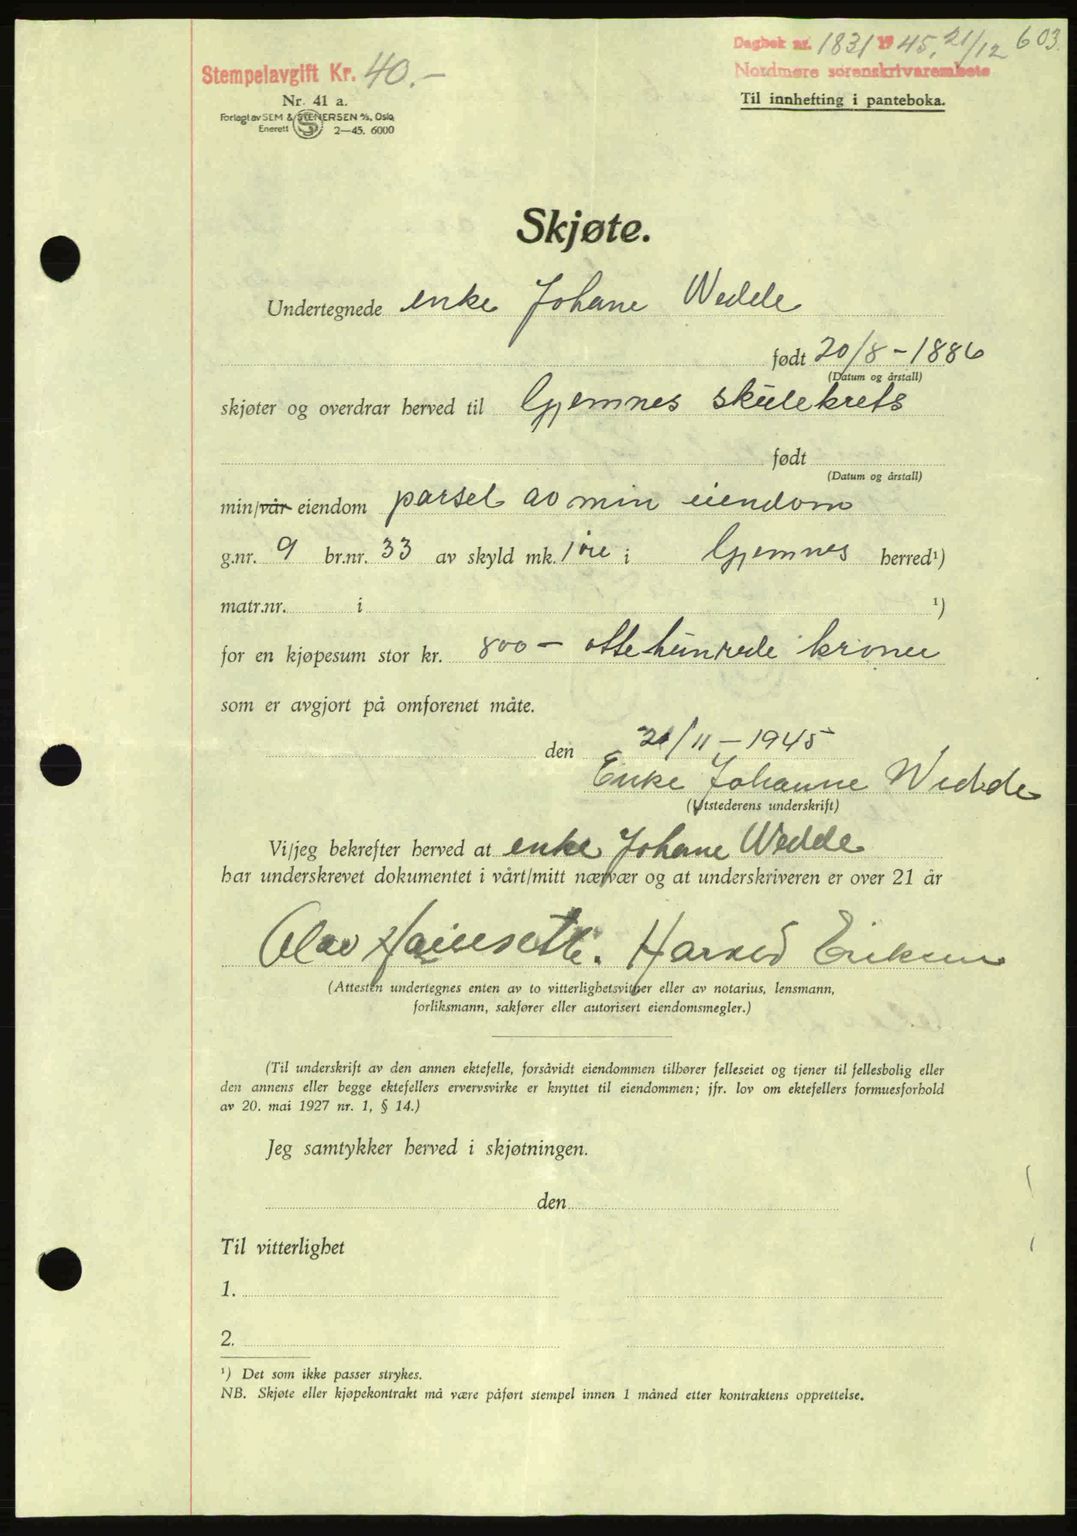 Dagbok nr. 1831 1945, 21/12 603.
Stempelavgift Kr. 40.-
Nordmøre sorenskrivarembete
Nr. 41 a.
Til innhefting i panteboka.
Forlagt av SEM & STENERSEN A/S, Oslo
Enerett 2—45. 6000
Skjøte.
Undertegnede enke Johane Wedde
født 20/8-1886
(Datum og årstall)
skjøter og overdrar herved til Gjemnes skulekrets
født
(Datum og årstall)
min/vår eiendom parsel av min eiendom
g.nr. 9 br.nr. 33 av skyld mk. 1 øre i Gjemnes herred¹)
matr.nr. i ¹)
for en kjøpesum stor kr. 800 — otte hundrede kroner
som er avgjort på omforenet måte.
den 21/11-1945
Enke Johanne Wedde
(Utstederens underskrift)
Vi/jeg bekrefter herved at enke Johane Wedde
har underskrevet dokumentet i vårt/mitt nærvær og at underskriveren er over 21 år
Olav Harald Eriksen
(Attesten undertegnes enten av to vitterlighetsvitner eller av notarius, lensmann,
forliksmann, sakfører eller autorisert eiendomsmegler.)
(Til underskrift av den annen ektefelle, forsåvidt eiendommen tilhører felleseiet og tjener til fellesbolig eller
den annens eller begge ektefellers ervervsvirke er knyttet til eiendommen; jfr. lov om ektefellers formuesforhold
av 20. mai 1927 nr. 1, § 14.)
Jeg samtykker herved i skjøtningen.
den
Til vitterlighet
1.
2.
¹) Det som ikke passer strykes.
NB. Skjøte eller kjøpekontrakt må være påført stempel innen 1 måned etter kontraktens opprettelse.